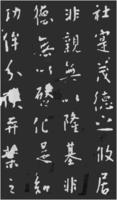 社寔茂德之攸居
非親無以隆基非
德無以啟化是知
功侔分陝奕葉之